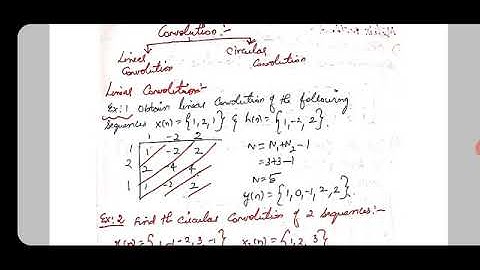 Convolution:-
Linear Circular
Convolution Convolution
Linear Convolution:-
Ex:1 Obtain linear Convolution of the following
sequences x(n) = {1, 2, 1} & h(n) = {1, -2, 2}.
1 -2 2
1 1 -2 2 N = N₁+N₂-1
2 2 -4 4 = 3+3-1
1 1 -2 2 N = 5
y(n) = {1, 0, -1, 2, 2}
Ex:2 Find the Circular Convolution of 2 sequences:-
= {1, -1, -2, 3, -1} = {1, 2, 3}